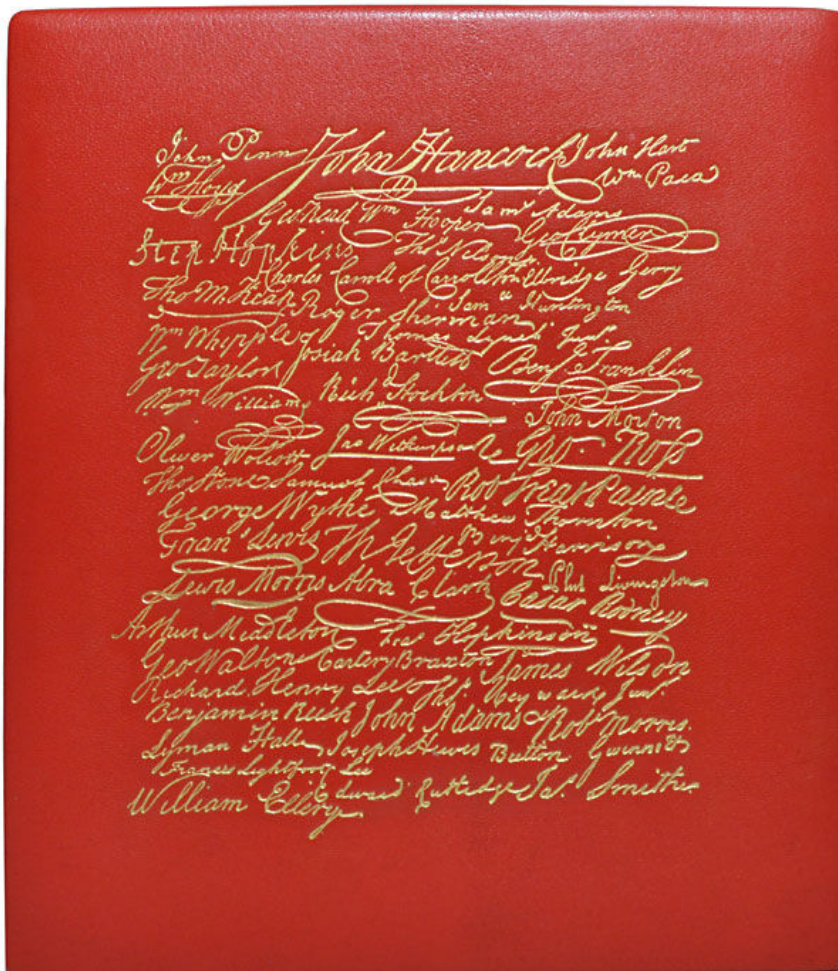 John Penn John Hancock John Hart
Wm Floyd Wm Paca
Geo Read Wm Hooper Saml Adams
Geo Clymer
Step Hopkins Thos Nelson jr
Charles Carroll of Carrollton Elbridge Gerry
Tho M. Kean Roger Sherman Saml Huntington
Wm Whipple Thomas Lynch Junr.
Geo Taylor Josiah Bartlett Benj Franklin
Wm Williams Richd Stockton
John Morton
Oliver Wolcott Jno Witherspoon Geo. Ross
Thos Stone Samuel Chase Rob Treat Paine
George Wythe Matthew Thornton
Fran Lewis Th Jefferson Benj Harrison
Lewis Morris Abra Clark Phil Livingston
Caesar Rodney
Arthur Middleton Fras Hopkinson
Geo Walton Carter Braxton James Wilson
Richard Henry Lee Thos. Heyward Junr.
Benjamin Rush John Adams Robt Morris.
Lyman Hall Joseph Hewes Button Gwinnett
Francis Lightfoot Lee
William Ellery Edward Rutledge Jas. Smith